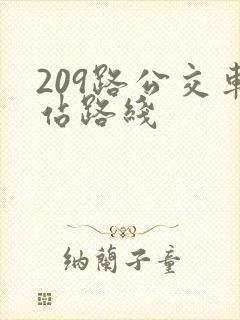 209路公交車
佔路綫
納蘭子童